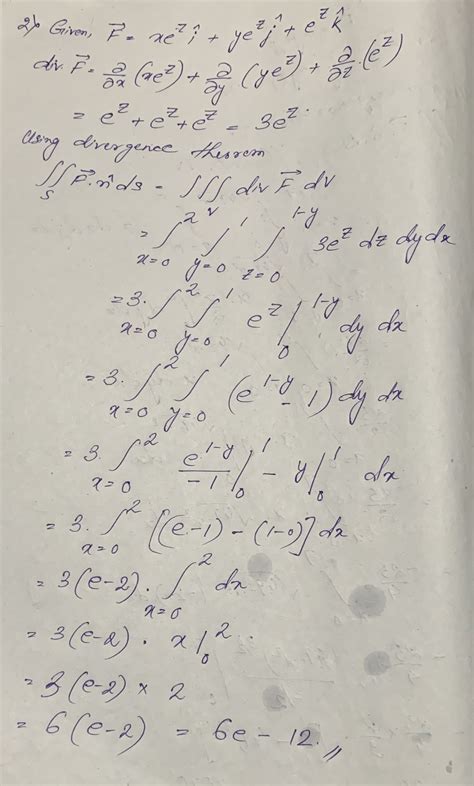 2). Given, F⃗ = xe^z î + ye^z ĵ + e^z k̂
div. F⃗ = ∂/∂x (xe^z) + ∂/∂y (ye^z) + ∂/∂z . (e^z)
= e^z + e^z + e^z = 3e^z.
Using divergence theorem
∬_S F⃗.n̂ ds = ∭_V div F⃗ dV
= ∫_{x=0}^{2} ∫_{y=0}^{1} ∫_{z=0}^{1-y} 3e^z dz dy dx
= 3. ∫_{x=0}^{2} ∫_{y=0}^{1} e^z |_0^{1-y} dy dx
= 3. ∫_{x=0}^{2} ∫_{y=0}^{1} (e^{1-y} - 1) dy dx
= 3. ∫_{x=0}^{2} e^{1-y}/-1 |_0^1 - y |_0^1 dx
= 3. ∫_{x=0}^{2} [(e-1) - (1-0)] dx
= 3(e-2) . ∫_{x=0}^{2} dx
= 3(e-2) . x |_0^2
= 3(e-2) × 2
= 6(e-2) = 6e - 12.,,